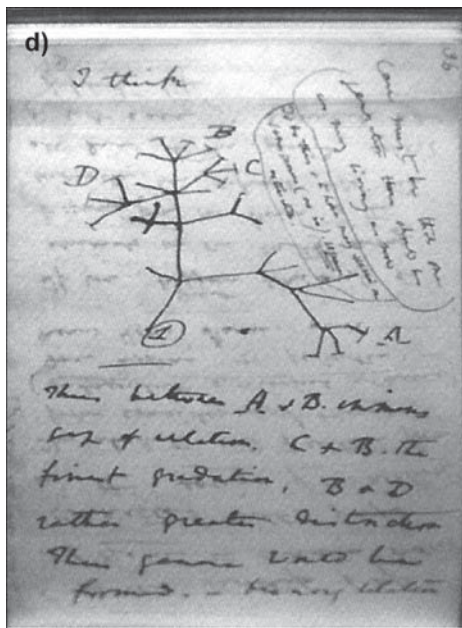 d)
36
I think
Case must be that one
generation then should be
as many living as now
To do this & to have many species in
same genus (as is) requires
extinction
B
D
C
1
A
Thus between A & B. immense
gap of relation. C & B. the
finest gradation, B & D
rather greater distinction
Thus genera would be
formed. — bearing relation